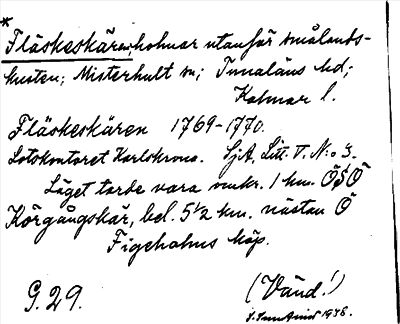 *
Fläskeskären, holmar utanför Smålands-
kusten; Misterhult sn; Tunaläns hd;
Kalmar l.
Fläskeskären 1769-1770.
Lotskontoret Karlskrona. SjA, Litt. V. N:o 3.
Läget torde vara omkr. 1 km. ÖSÖ
Körgångskär, bel. 5 1/2 km. nästan Ö
Figeholms köp.
G. 29. (Vänd!)
1948.